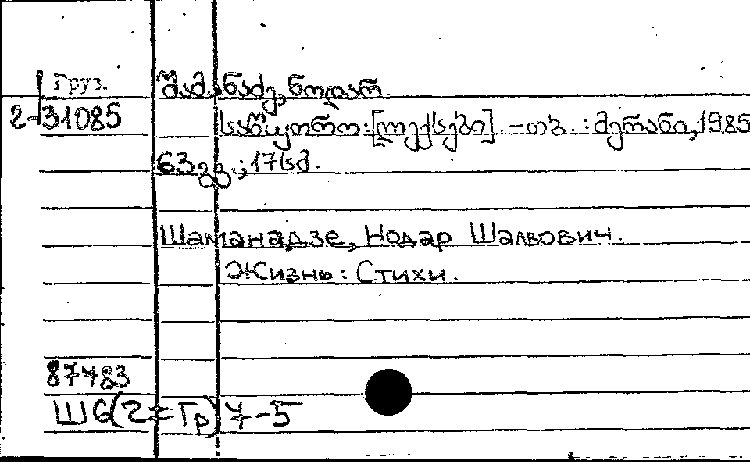 Груз.
შამანაძე, ნოდარ
2-31085
საწუთრო: [ლექსები]. - თბ. : მერანი, 1985
63 გვ. ; 17 სმ.
Шаманадзе, Нодар Шалвович.
Жизнь: Стихи.
87483
Ш6(2=Гр)7-5